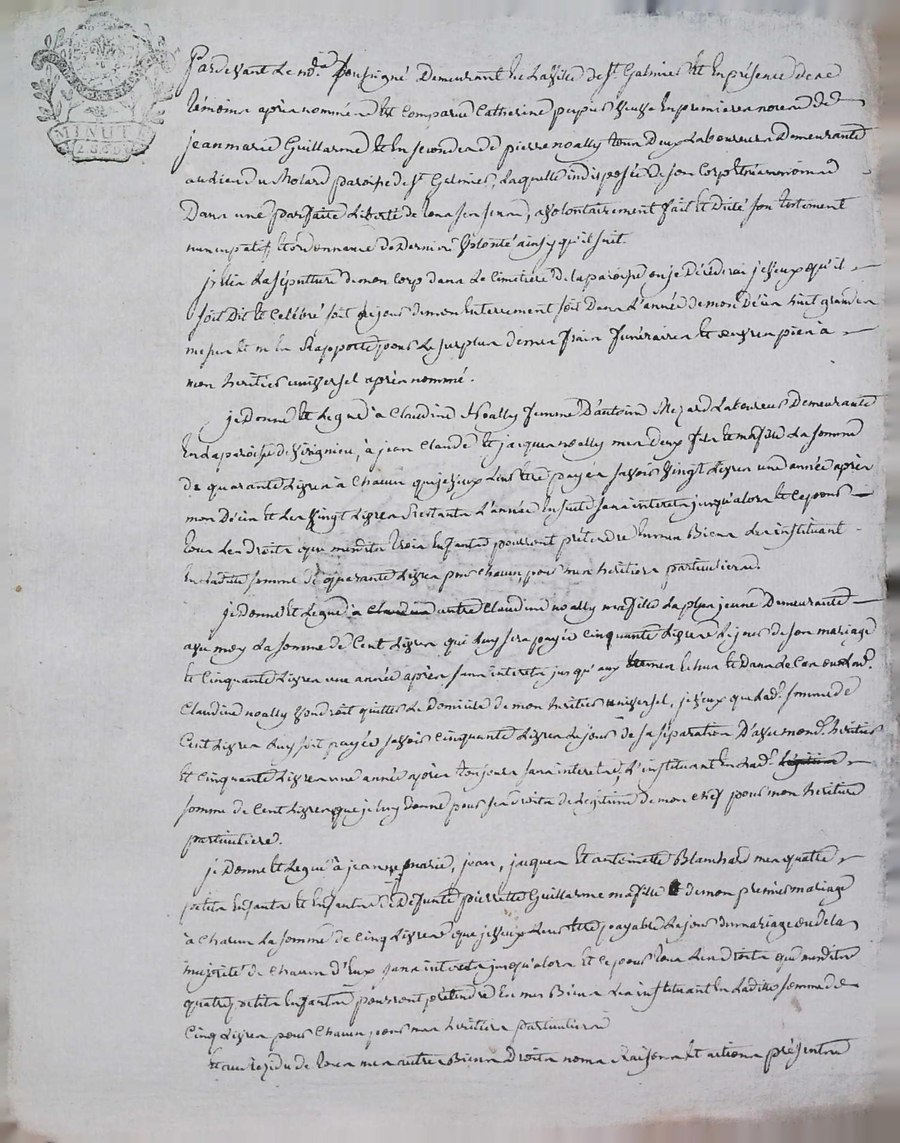 MINUTE
Pardevant le no.re soussigné demeurant en la ville de st Galmier et en présence de ce
témoins après nommés est comparue Catherine pupier veuve en premieres noces de
jean marie Guillarme et en secondes de pierre noally tous deux Laboureurs demeurants
au lieu du Molard paroisse de st Galmier, Laquelle indisposée de son corps
Dans une parfaite Liberté de tous ses sens, a volontairement fait et dicté son testement
nuncupatif et ordonnance de derniere volonté ainsy qu'il suit.
j'élis La sépulture de mon corps dans Le Cimetière de la paroisse ou je décéderai je veux qu'il
soit Dit et Celébré soit le jour de mon enterrement soit Dans L'année de mon Décès huit grandes
messes et m'en Rapporte pour Le surplus de mes frais funéraires et œuvres pies à
mon heritier universel après nommé.
je Donne et Legue à Claudine Noally femme D'antoine Mezard Laboureur Demeurants
En la paroisse de Virignieu, à jean Claude et jacques noally mes deux fils et ma fille La somme
de quarante Livres à Chacun que je veux Leur être payée savoir Vingt Livres une année après
mon Décès et Les Vingt Livres Restants L'année Ensuite sans interets jusqu'alors et ce pour
tous Les droits que mesdits trois Enfants pourront prétendre En mes Biens Les instituant
En Ladite somme de quarante Livres pour Chacun pour mes heritiers particuliers.
je Donne et Legue à Claudine autre Claudine noally ma fille La plus jeune Demeurante
avec moy La somme de Cent Livres qui Luy sera payée Cinquante Livres Le jour de son mariage
et Cinquante Livres une année après sans interets jusqu'aux termes echus et Dans Le Cas ou Lad.
Claudine noally voudroit quitter Le Domicile de mon heritier universel, je veux que Lad. somme de
Cent Livres Luy soit payée savoir Cinquante Livres Le jour de sa séparation D'avec mond. heritier
Et Cinquante Livres une année après toujours sans interets, L'instituant En Lad. Légitime
somme de Cent Livres que je Luy Donne pour ses Droits de Legitime de mon Chef pour mon heritiere
particuliere.
je Donne et Legue à jeanne marie, jean, jacques et antoinette Blanchard mes quatre
petits Enfants et Enfants de Défunte pierrette Guillarme ma fille de mon premier mariage
à Chacun La somme de Cinq Livres que je veux Leur être payable Le jour du mariage ou de La
majorité de Chacun d'Eux sans interets jusqu'alors Et Ce pour tous Les Droits que mesdits
quatre petits Enfants pourront prétendre En mes Biens Les instituant En Ladite somme de
Cinq Livres pour Chacun pour mes heritiers particuliers
Et au Rezidu de tous mes autres Biens Droits noms Raisons Et actions présents